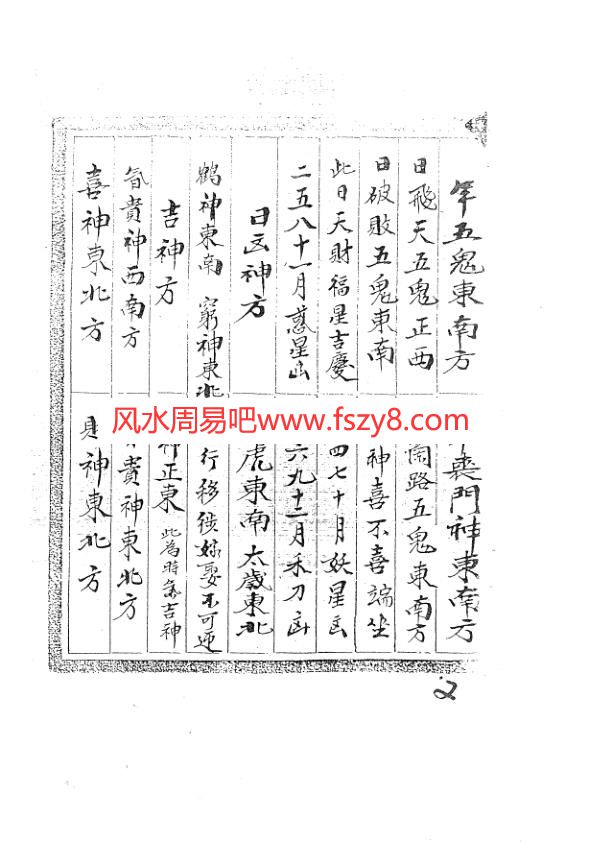 年五鬼東南方 喪門神東南方
日飛天五鬼正西 路五鬼東南方
日破敗五鬼東南 神喜不喜端坐
此日天財福星吉慶 四七十月妖星凶
二五八十一月惑星凶 六九十二月禾刀凶
日凶神方 虎東南 太歲東北
鶴神東南 窮神東北 行移徙嫁娶不可迎
吉神方 神正東 此為時家吉神
貴神西南方 貴神東北方
喜神東北方 神東北方
风水周易吧www.fszy8.com
2